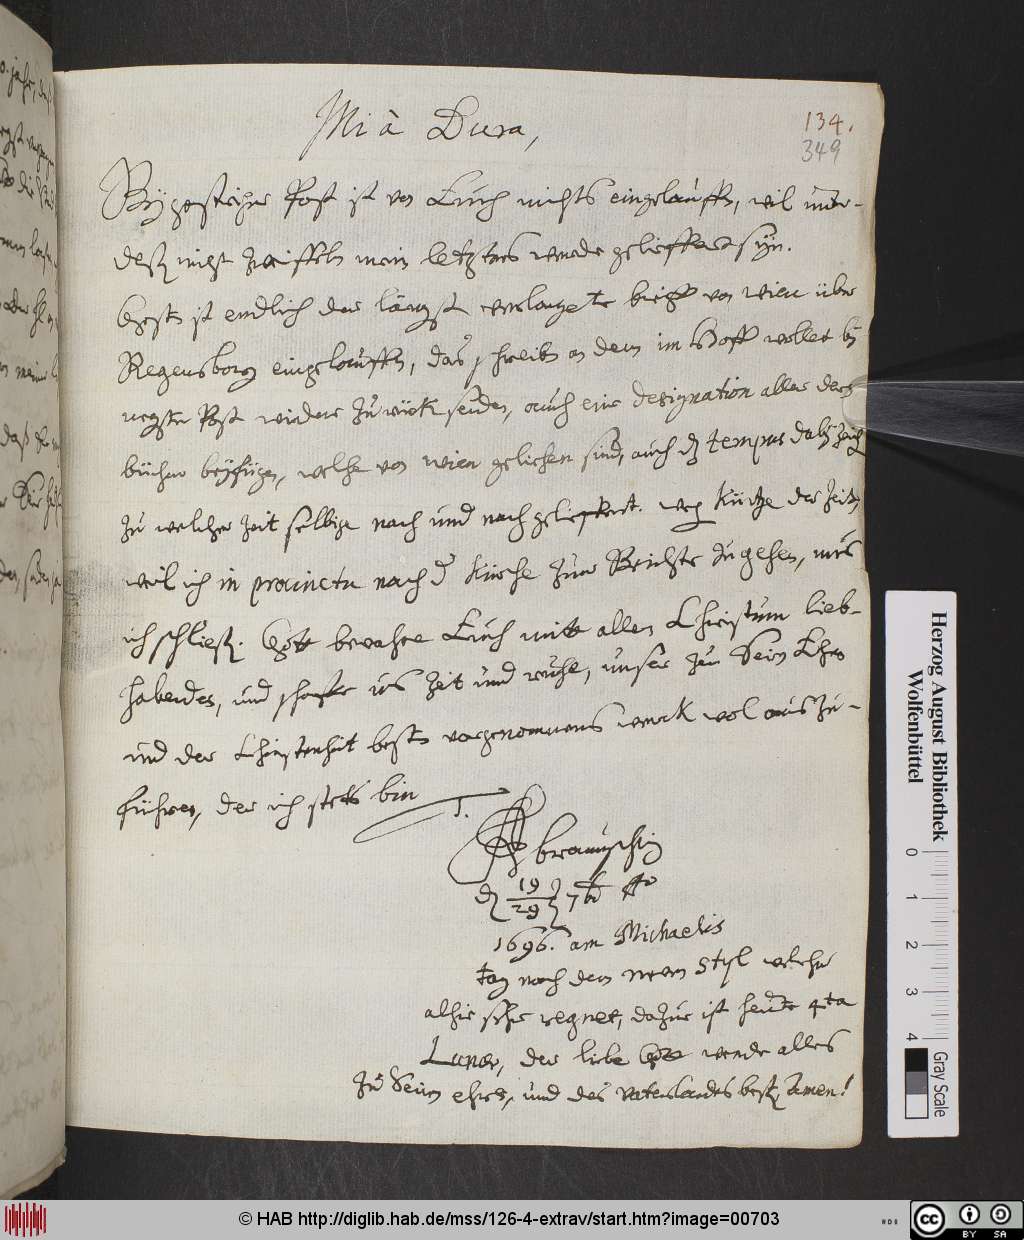 Mi à Dura,
134.
349
Bÿ gestriger Post ist von Euch nichts eingelauffen, wil unter-
deß nicht zweiffeln mein letztres werde geliefert sÿn.
Gestern ist endlich der längst verlangete brieff von Wien über
Regensborg eingelauffen, das schreiben an dem im Hoff wollet bÿ
negster Post wieder zurück senden, auch eine designation aller der
bücher beÿfügen, welche von Wien geliehen sind, auch dz tempus dabÿ
zu welcher Zeit selbige nach und nach geliefert. weg Kürtze der Zeit,
weil ich in procinctu nach der Kirche zum Beichte zu gehen, mus
ich schließen. Gott bewahre Euch mit allen Christum lieb-
habenden, und schaffe uns Zeit und ruhe, unser zu Sein Ehre
und der Christenheit besten vorgenommenes werck wol aus zu-
führen, der ich stets bin
brauuschin
19
29
7br
1696. am Michaelis
tag nach dem newen Styl welcher
alhie sehr regnet, dazu ist heute 4ta
Lunae, der liebe Gott wende alles
zu Seinen ehren, und des Vaterlandes besten Amen!
Herzog August Bibliothek
Wolfenbüttel
0
1
2
3
4
Gray Scale
© HAB http://diglib.hab.de/mss/126-4-extrav/start.htm?image=00703
cc
BY SA